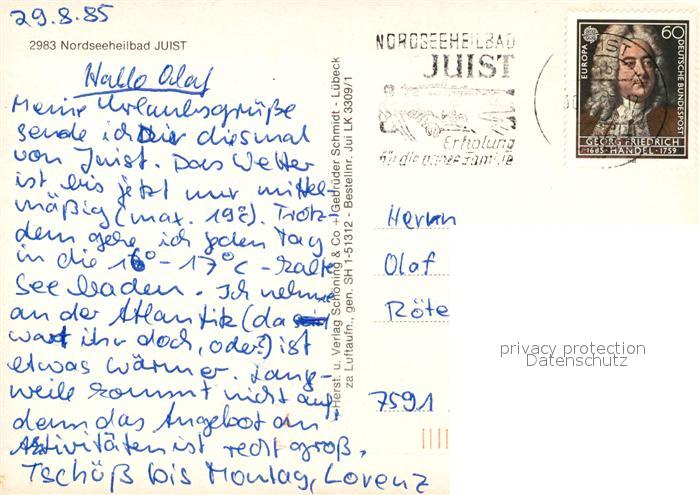 29.8.85
2983 Nordseeheilbad JUIST
Hallo Olaf
Meine Urlaubsgrüße
sende ich Dir diesmal
von Juist. Das Wetter
ist bis jetzt nur mittel-
mäßig (max. 19°C). Trotz-
dem gehe ich jeden Tag
in die 16°-17°C-kalte
See baden. Ich nehme
an der Atlantik (da
wart ihr doch, oder?) ist
etwas wärmer. Lang-
weile kommt nicht auf,
denn das Angebot an
Aktivitäten ist recht groß.
Tschüß bis Montag, Lorenz
Herst. u. Verlag Schöning & Co + Gebrüder Schmidt - Lübeck
za Luftaufn., gen. SH 1-51312 - Bestellnr. Jui LK 3309/1
NORDSEEHEILBAD
JUIST
Erholung
für die ganze Familie
EUROPA
60
DEUTSCHE BUNDESPOST
GEORG FRIEDRICH
1685 · HÄNDEL · 1759
Herrn
Olaf
Röte
7591
privacy protection
Datenschutz